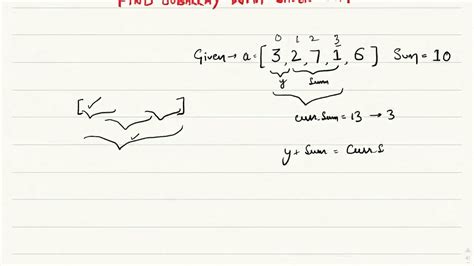 FIND SUBARRAY WITH GIVEN SUM
0 1 2 3
Given → a = [3, 2, 7, 1, 6] Sum = 10
y Sum
[ ✓ ]
curr. Sum = 13 → 3
✓
y + Sum = Curr S